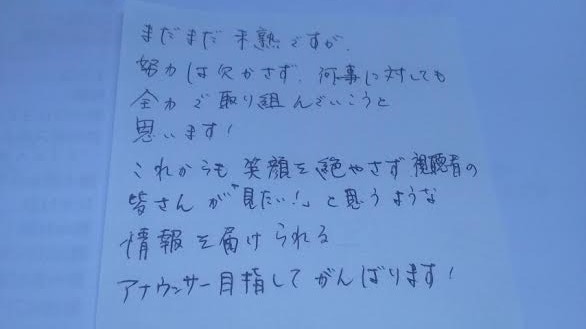 まだまだ未熟ですが、
努力は欠かさず、何事に対しても
全力で取り組んでいこうと
思います!
これからも笑顔を絶やさず視聴者の
皆さんが「見たい!」と思うような
情報を届けられる
アナウンサー目指してがんばります!